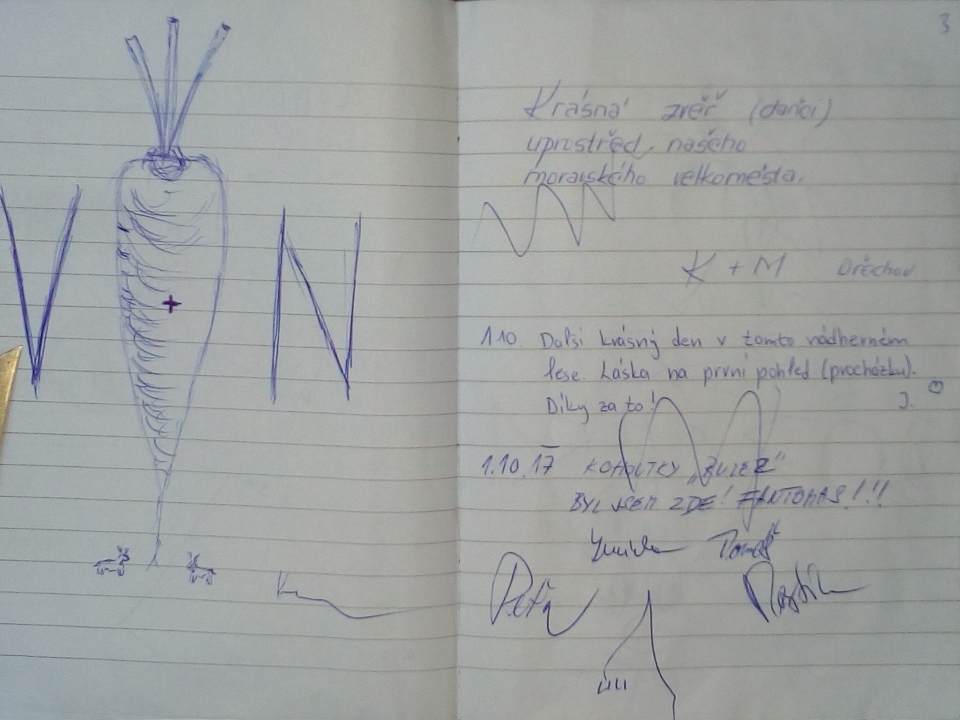 V N
3
Krásná zvěř (daňci)
uprostřed našeho
moravského velkoměsta.
K + M Ořechov
1.10. Další krásný den v tomto nádherném
lese. Láska na první pohled (procházku).
Díky za to! J.
1.10.17 KOHOUTKY
BYL JSEM ZDE! FANTOMAS!!!
Tomáš
Petr